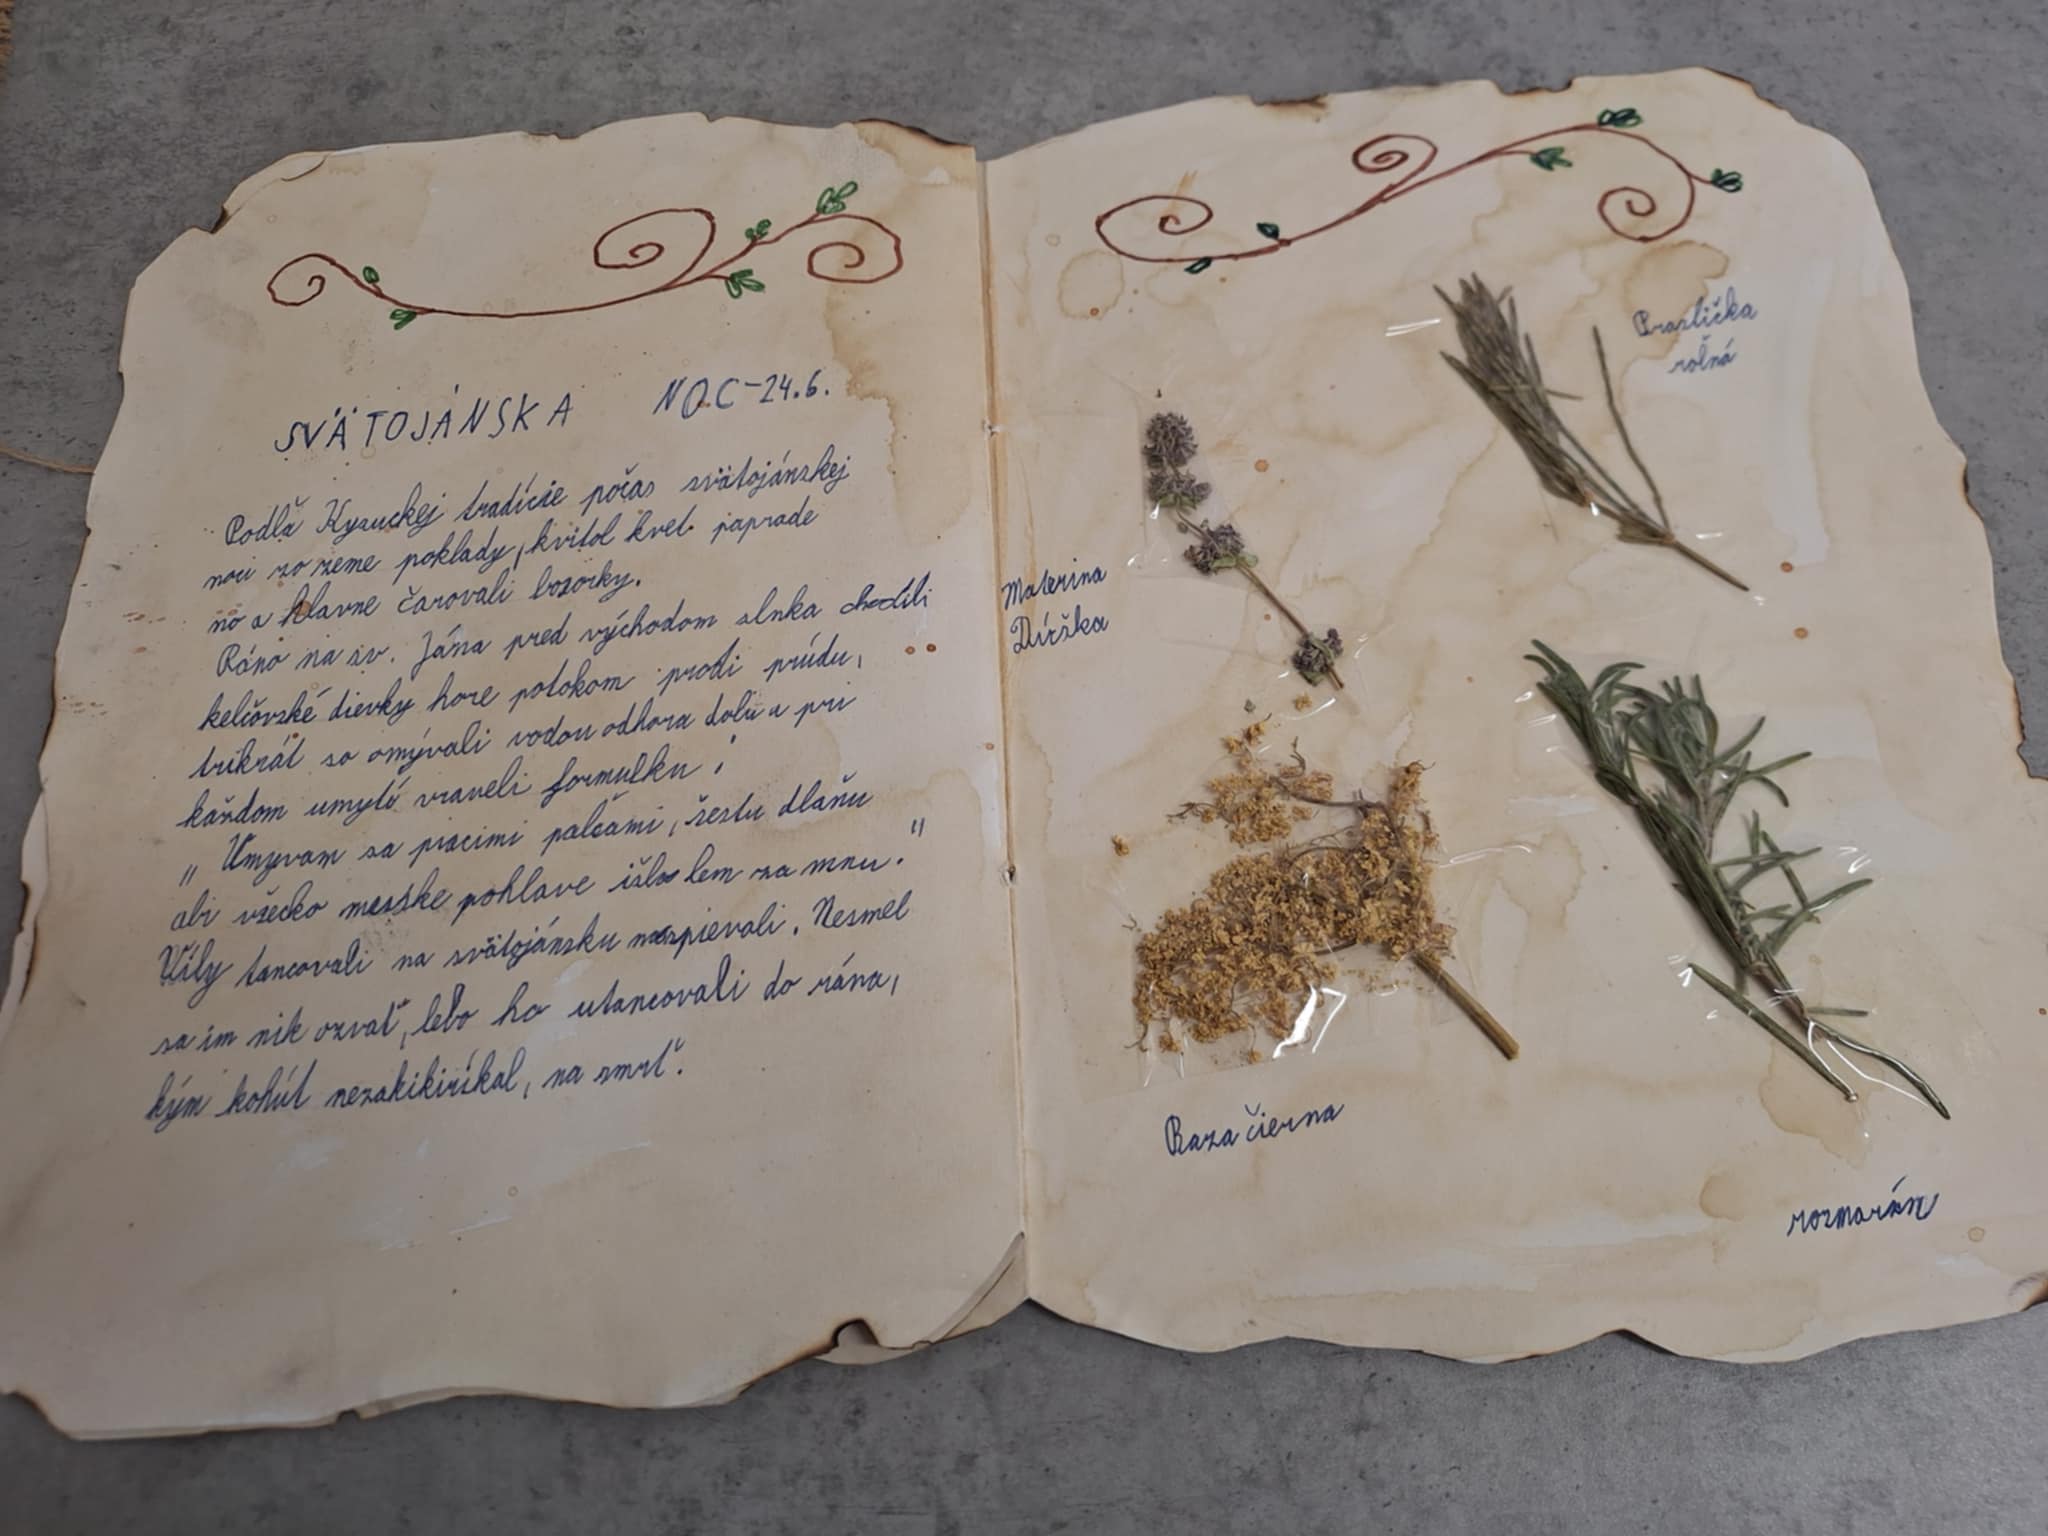 SVÄTOJÁNSKA NOC - 24.6.
Podľa Kysuckej tradície počas svätojánskej
noci zo zeme poklady, kvitol kvet paprade
no a hlavne čarovali bosorky.
Ráno na sv. Jána pred východom slnka chodili
kelčovské dievky hore potokom proti prúdu,
trikrát sa omývali vodou odhora dolu a pri
každom umytí vraveli formulku:
„Umyvam sa piacimi palcami, šestu dlaňu
abi všecko messke pohlave išlo lem za mnu."
Víly tancovali na svätojánsku spievali. Nesmel
sa im nik ozvať, lebo ho utancovali do rána,
kým kohút nezakikiríkal, na smrť.
Praslička
roľná
Materina
Dúška
Baza čierna
rozmarín